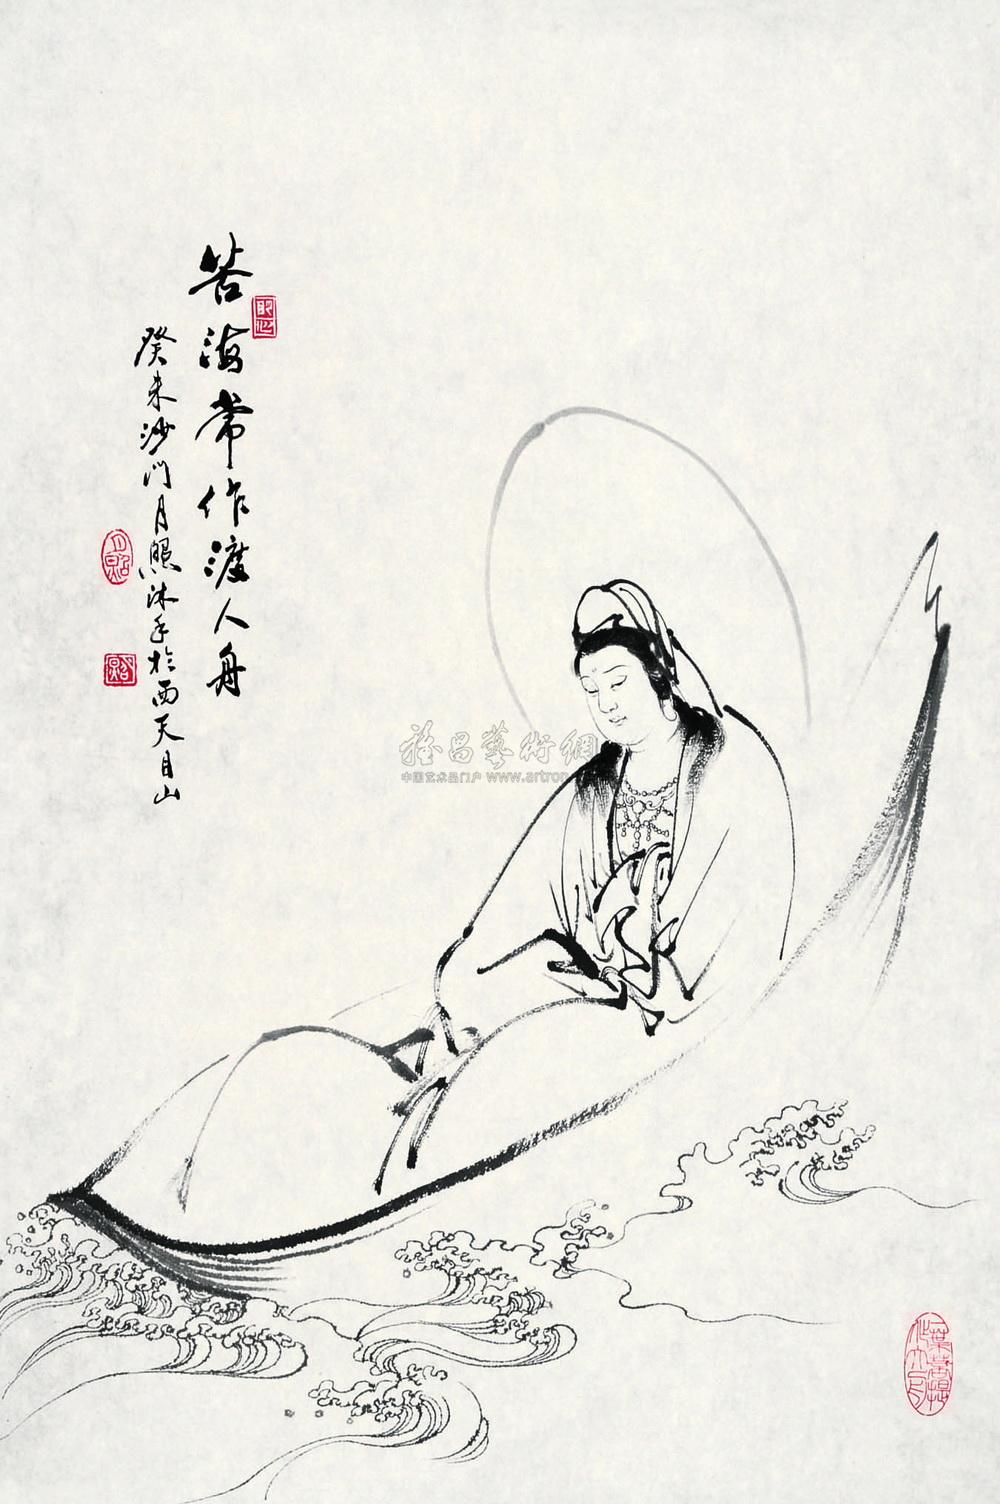 苦海常作渡人舟
癸未沙門月照沐手於西天目山
雅昌藝術網
中国艺术品门户 www.artron
月照